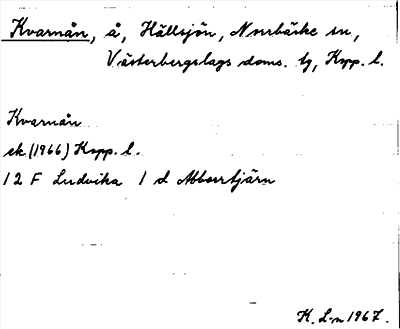 Kvarnån, å, Hällsjön, Norrbärke sn,
Västerbergslags doms. tg, Kopp. l.
Kvarnån
ek (1966) Kopp. l.
12 F Ludvika 1 d Abborrtjärn
K. L-n 1967.